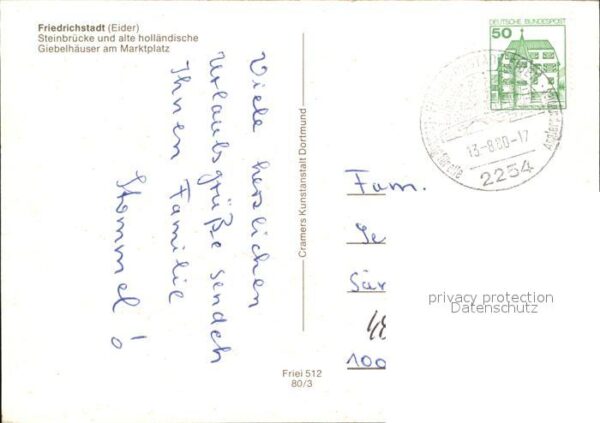 Friedrichstadt (Eider)
Steinbrücke und alte holländische
Giebelhäuser am Marktplatz
Viele herzlichen
Urlaubsgrüße senden
Ihnen Familie
Stommel!
Cramers Kunstanstalt Dortmund
Friei 512
80/3
DEUTSCHE BUNDESPOST
50
13-8.80-17
2254
Fam.
Je
Sär
100
privacy protection
Datenschutz